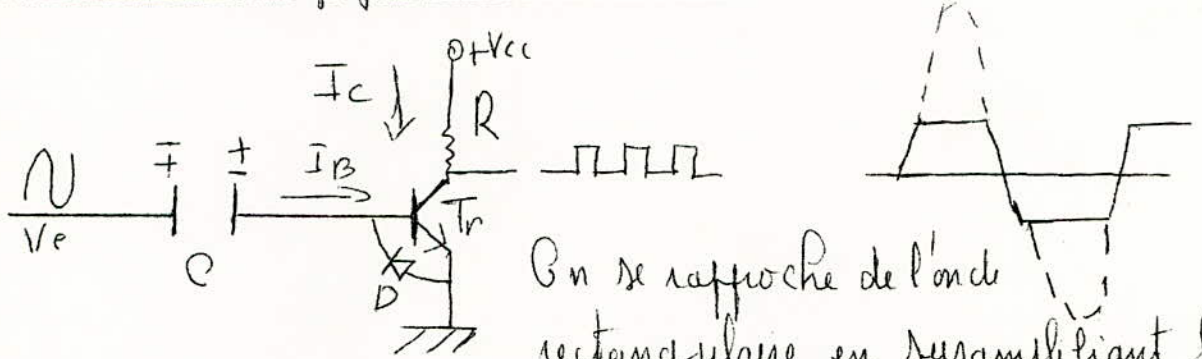 +Vcc
Ic
R
∓
±
IB
Tr
Ve
C
D
On se rapproche de l'onde
rectangulaire en suramplifiant